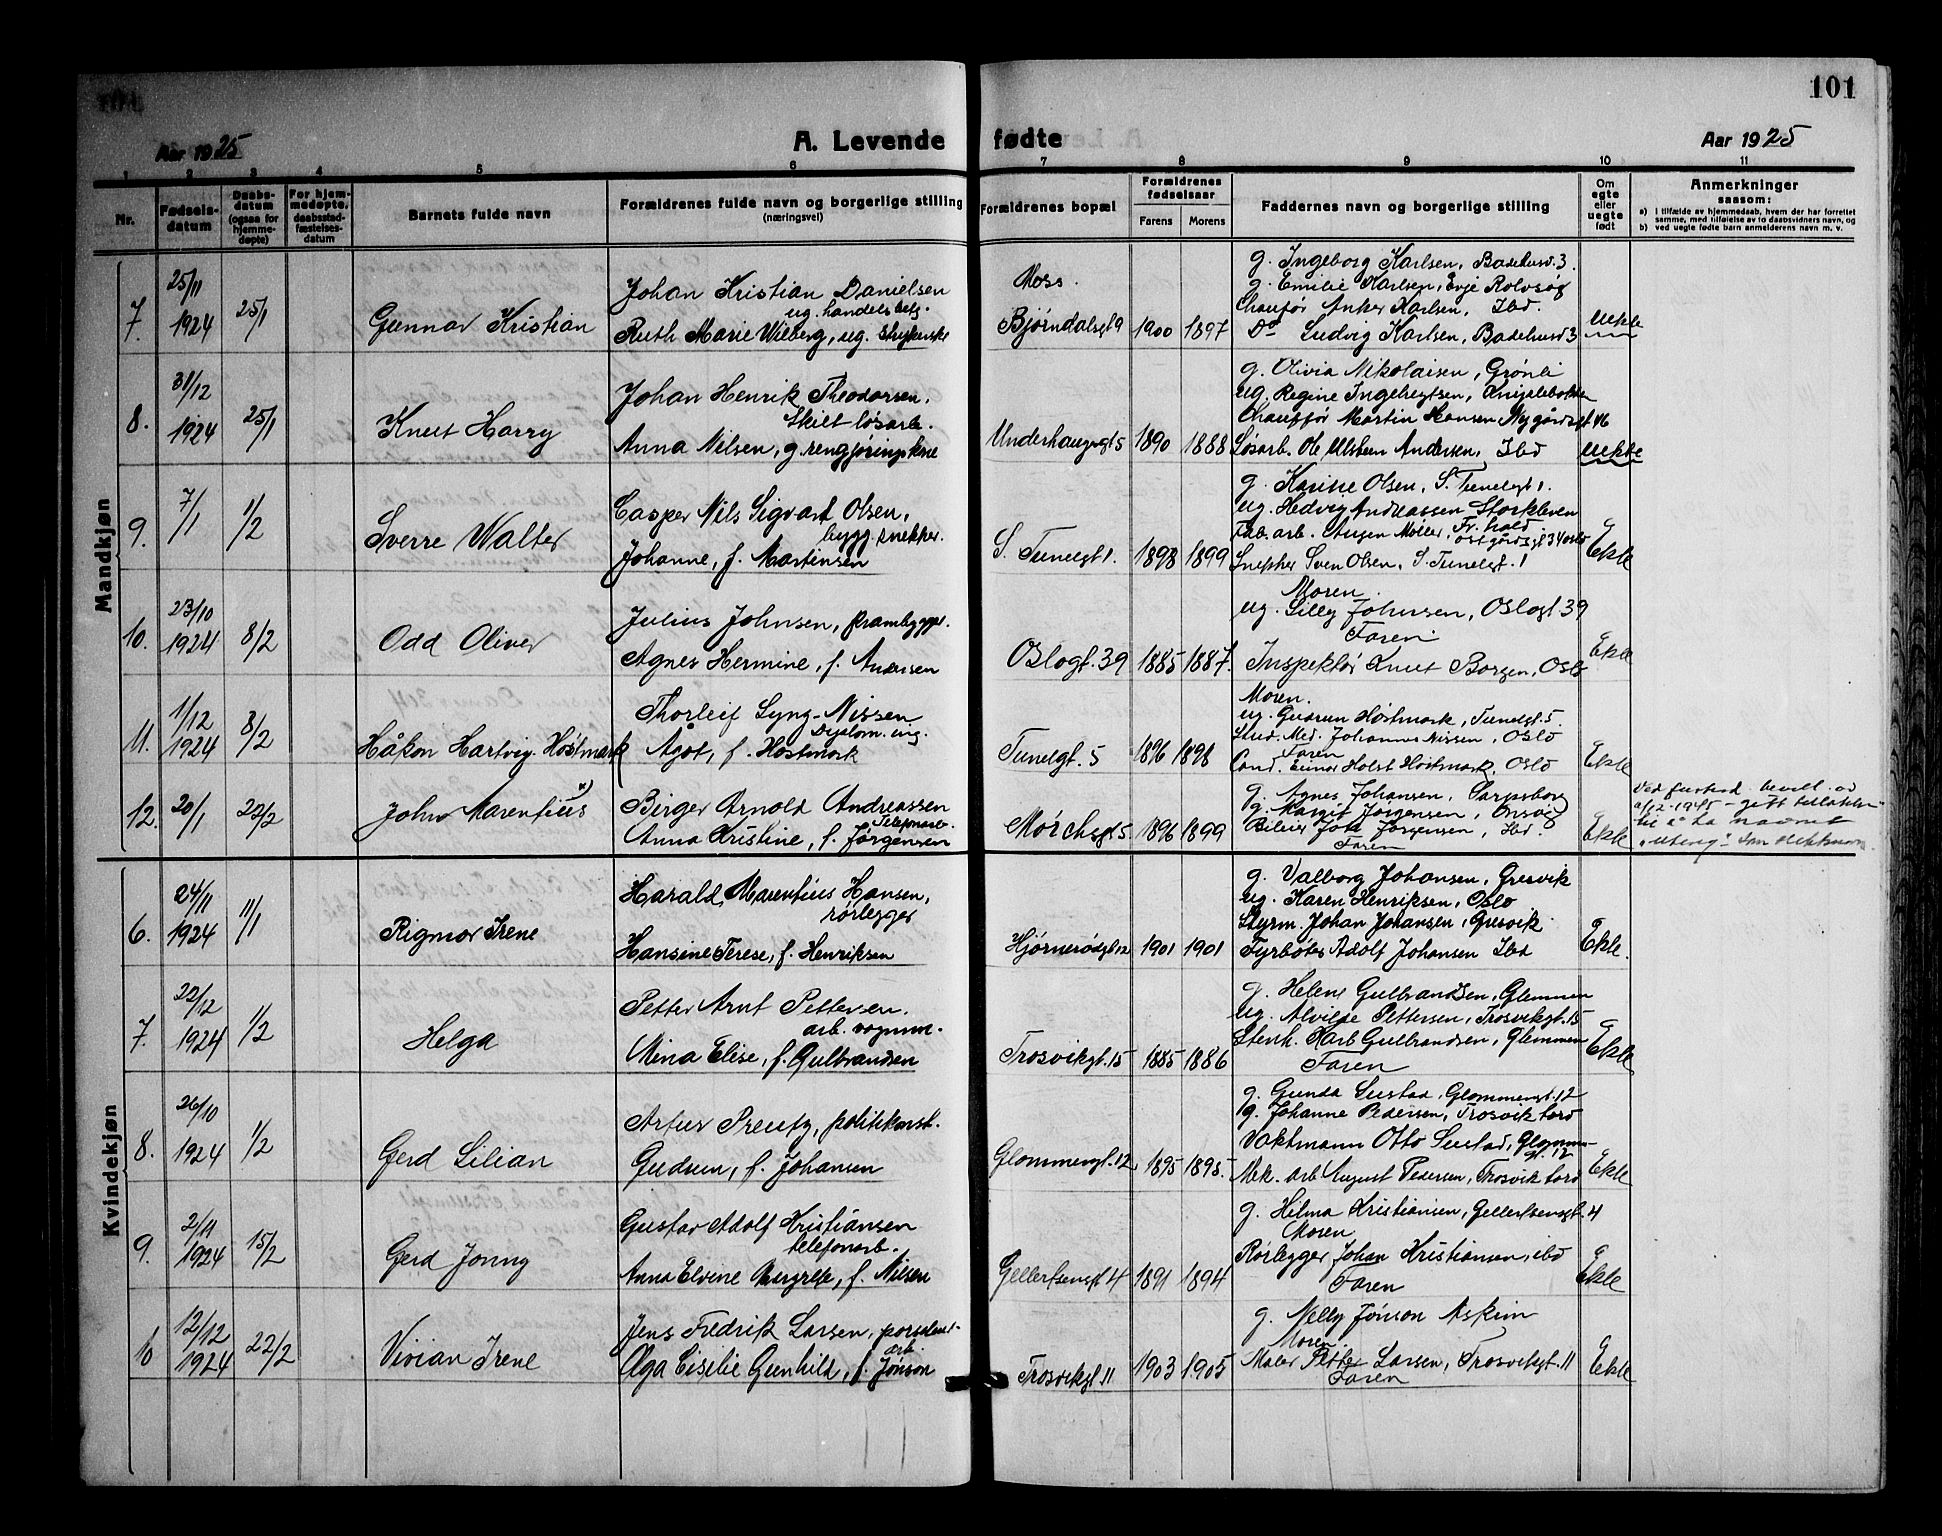 101
Aar 1925
A. Levende fødte
Aar 1925
1 2 3 4 5 6 7 8 9 10 11
Nr.
Fødsels-
datum
Daabs-
datum
(ogsaa for
hjemme-
døpte)
For hjem-
medøpte,
daabsstad-
fæstelses-
datum
Barnets fulde navn
Forældrenes fulde navn og borgerlige stilling
(næringsvei)
Forældrenes bopæl
Forældrenes
fødselsaar
Farens Morens
Faddernes navn og borgerlige stilling
Om
egte
eller
uegte
født
Anmerkninger
saasom:
a) i tilfælde av hjemmedaab, hvem der har forrettet
samme, med tilføielse av to daabsvidners navn, og
b) ved uegte fødte barn anmelderens navn m. v.
Mandkjøn
7. 25/11 1924 25/1
Gunnar Kristian
Johan Kristian Danielsen
ug. handelsbetj.
Ruth Marie Wiberg, ug. strykerske
Moss.
Bjørndalsgt 9 1900 1897
g. Ingeborg Karlsen, Badehusd. 3.
g. Emilie Karlsen, Evje Rolvsøy
Chauffør Anker Karlsen, Ibd.
Do Ludvig Karlsen, Badehusd 3
uekte
8. 31/12 1924 25/1
Knut Harry
Johan Henrik Theodorsen,
Skilt løsarb.
Anna Nilsen, g. rengjøringskone
Underhaugsgt 5 1890 1888
g. Olivia Nikolaisen, Grønli
ug. Regine Ingebregtsen,
Chauffør Martin Hansen Nygårdsgt 16
Løsarb. Ole Ulsteen Andersen, Ibd
uekte
9. 7/1 1/2
Sverre Walter
Casper Nils Sigvart Olsen,
bygg. snekker.
Johanne, f. Martinsen
S. Tunegt 1. 1898 1899
g. Karine Olsen, S. Tunegt 1.
ug. Hedvig Andreassen Storkleven
Fab. arb. Møller, Fr. hald
Østgårdsgt 34 Oslo
Snekker Sven Olsen, S. Tunegt. 1
Ekte
10. 23/10 1924 8/2
Odd Oliver
Julius Johnsen, prambygger.
Agnes Hermine, f. Andersen
Oslogt. 39 1885 1887.
Moren.
ug. Lilly Johnsen, Oslogt 39
Faren.
Inspektør Knut Borgen, Oslo
Ekte
11. 1/12 1924 8/2
Håkon Hartvig Høstmark
Thorleif Lyng-Nissen
Dyplom. ing.
Agot, f. Høstmark
Tunegt. 5 1896 1898
Moren.
ug. Gudrun Høstmark, Tunegt. 5.
Stud. Med. Johannes Nissen, Oslo
Faren
Cand. Einar Holst Høstmark, Oslo
Ekte
12. 20/1 22/2
John Marentius x)
Birger Arnold Andreassen
Telefonarb.
Anna Kristine, f. Jørgensen
Mørchsgt 5 1896 1899
g. Agnes Johansen, Sarpsborg
g. Margit Jørgensen, Onsøy
Jørgensen, Ibd.
Faren
Ekte
Ved bevill. av
1945 - gitt tillatelse
til å ta navnet
som slektsnavn.
Kvindekjøn
6. 24/11 1924 11/1
Rigmor Irene
Harald Marentius Hansen,
rørlegger
Hansine Terese, f. Henriksen
Hjørnerødgt 12 1901 1901
g. Valborg Johansen, Gresvik
ug. Karen Henriksen, Oslo
Styrm. Johan Johansen, Gresvik
Fyrbøter Adolf Johansen Ibd
Ekte.
7. 22/12 1924 1/2
Helga
Petter Arnt Pettersen.
arb. vognm.
Mina Elise, f. Gulbrandsen
Trosvikgt. 15 1885 1886
g. Helene Gulbrandsen, Glemmen
ug. Alvilde Pettersen, Trosvikgt. 15
Stenh. Karl Gulbrandsen, Glemmen
Faren
Ekte
8. 26/10 1924 1/2
Gerd Lilian
Artur Preutz, politikonst.
Gudrun, f. Johansen
Glommengt. 12 1895 1895.
g. Gunda Sustad, Glommengt. 12
g. Johanne Pedersen, Trosvik
Vaktmann Otto Sustad, Glommen-
gt. 12
Mek. arb August Pedersen, Trosvik
Ekte
9. 2/11 1924 15/2
Gerd Jonny
Gustav Adolf Kristiansen
telefonarb.
Anna Elvine Margrete, f. Nilsen
Gellertsengt 4 1891 1894
g. Hilma Kristiansen, Gellertsengt. 4
Moren
Rørlegger Johan Kristiansen, ibd
Faren
Ekte
10 12/12 1924 22/2
Vivian Irene
Jens Fredrik Larsen, porselens-
arb.
Olga Cisilie Gunhild, f. Jónson
Trosvikgt 11 1903 1905
g. Nelly Jónson Askim
Moren
Maler Petter Larsen, Trosvikgt. 11
Faren
Ekte